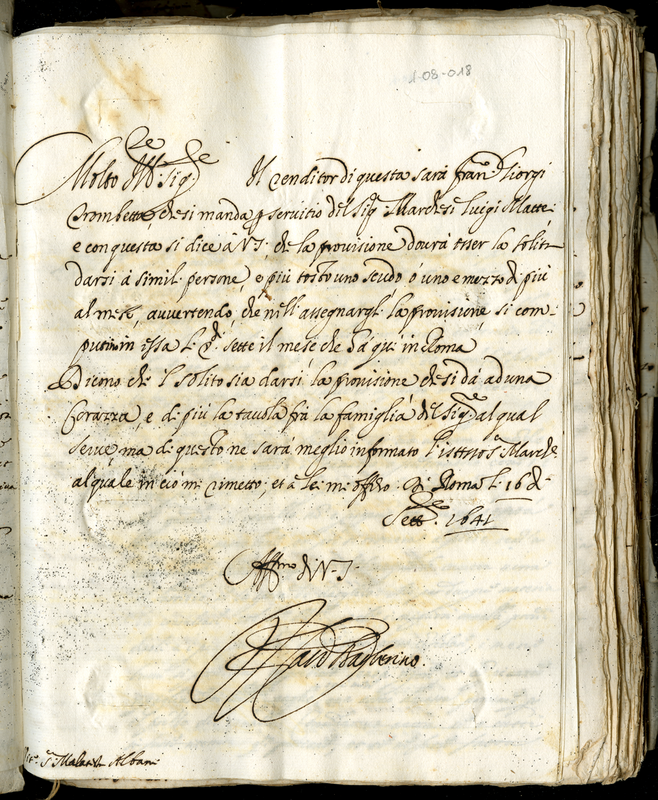 1-08-018
Molto Ill.re Sig.re Il renditor di questa sarà Fran.o Giorgi
Trombetta, che si manda p servitio del Sig. Marchese Luigi Mattei
e con questa si dice à V.S. che la provisione dovrà esser la solita
darsi à simil persone, e più tosto uno scudo, ò uno e mezzo di più
al mese, avvertendo, che nell'assegnargli la provisione, si com-
putino in essa li sette il mese che dà quì in Roma
Dicono che 'l solito sia darsi la provisione che si dà ad una
Corazza, e di più la tavola frà la famiglia del Sig.re al qual
serve, ma di questo ne sarà meglio informato l'istesso S. March.e
al quale in ciò mi rimetto, et à lei mi offero. Di Roma li 16 di
Sett.re 1641
Aff.mo di V.S.
Barberino.
S. Malatesta Albani